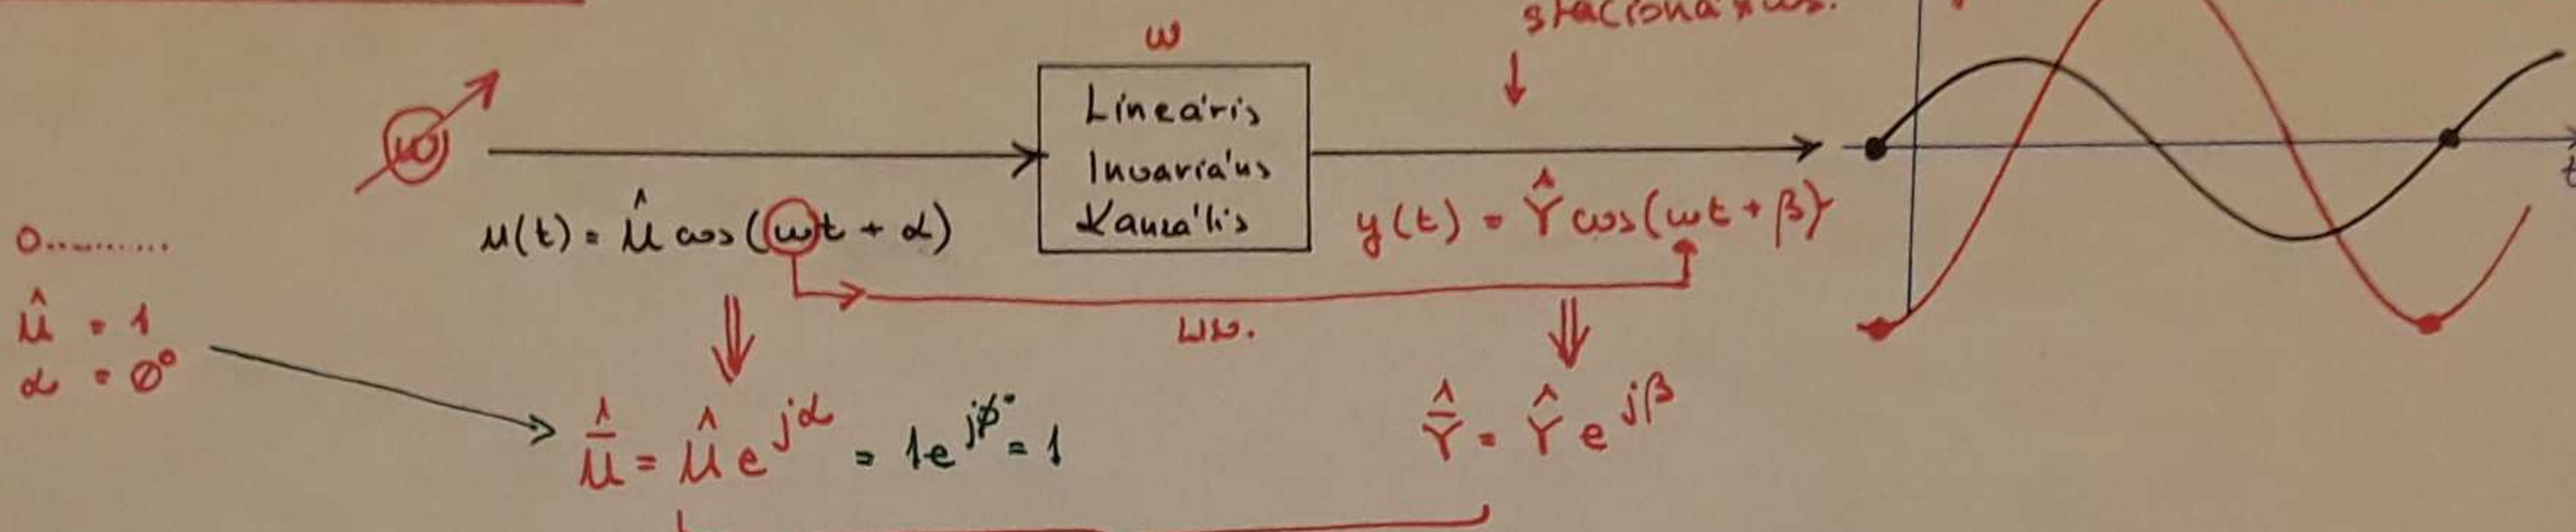 stacionárius.
ω
ω
Lineáris
Invariáns
Kauzális
u(t) = Û cos(ωt + α)
y(t) = Ŷ cos(ωt + β)
0...........
Û = 1
α = 0°
t
Û = Û e^{jα} = 1e^{j0°} = 1
Ŷ = Ŷ e^{jβ}